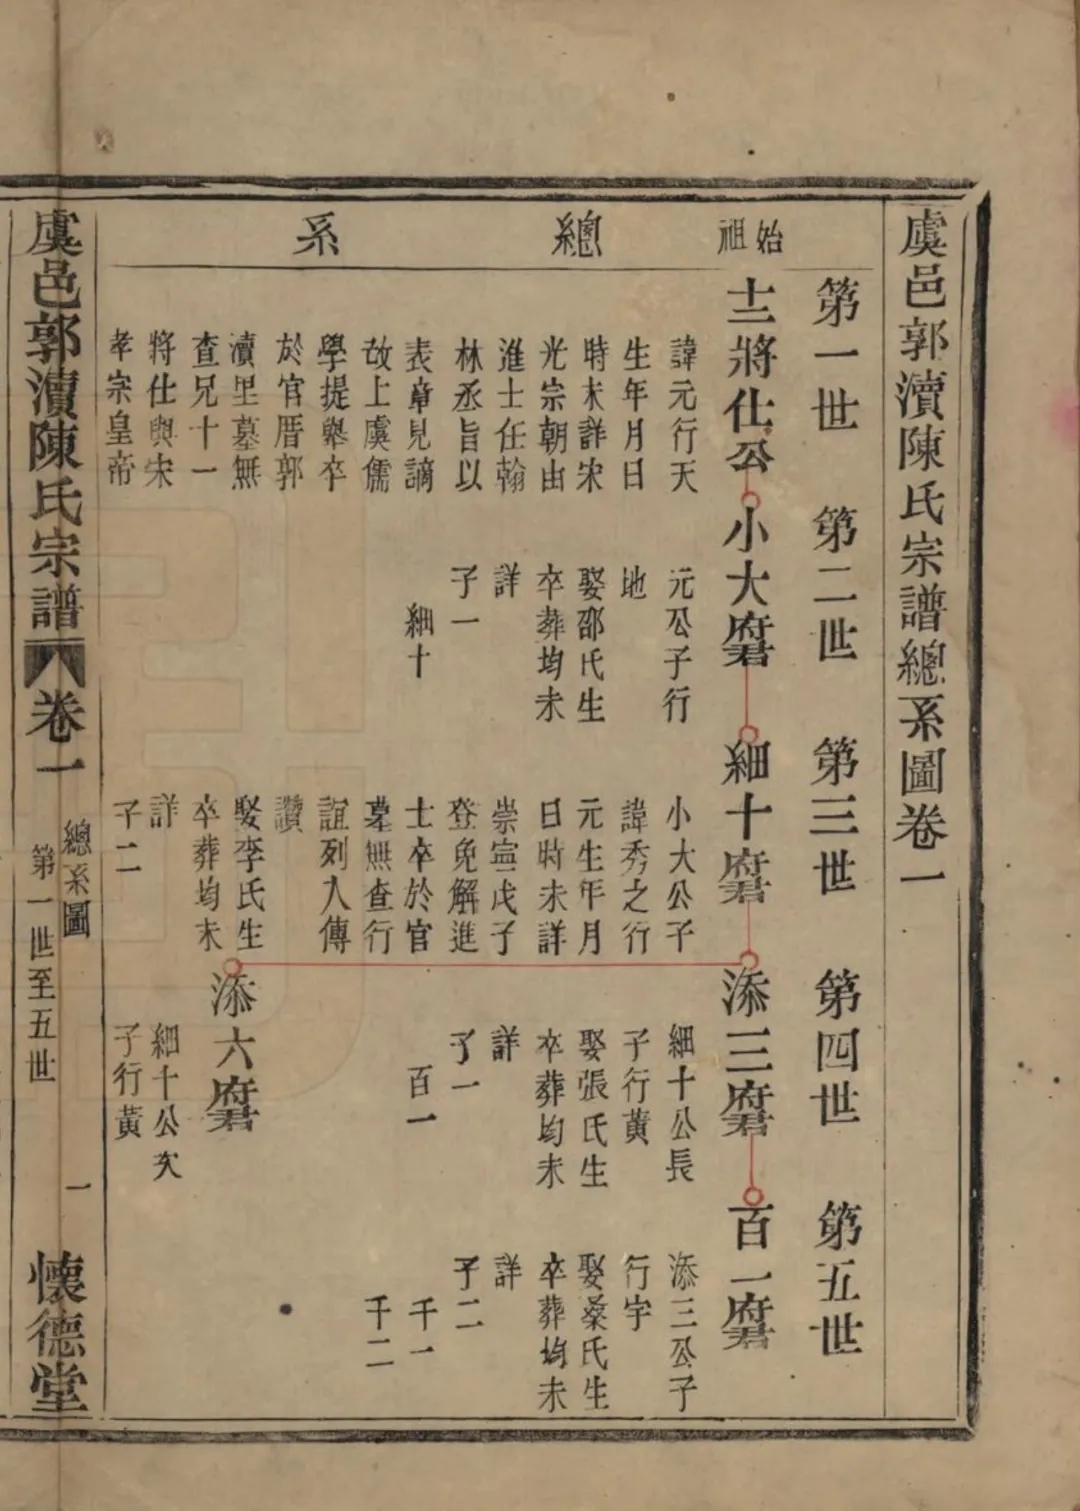 虞邑郭瀆陳氏宗譜總系圖卷一
始祖
總
系
第一世
第二世
第三世
第四世
第五世
十二將仕公
諱元行天
生年月日
時未詳宋
光宗朝由
進士任翰
林丞旨以
表章見謫
故上虞儒
學提舉卒
於官厝郭
瀆里墓無
查兄十一
將仕與宋
孝宗皇帝
小大府君
元公子行
地
娶邵氏生
卒葬均未
詳
子一
細十
細十府君
小大公子
諱秀之行
元生年月
日時未詳
崇寍戊子
登免解進
士卒於官
墓無查行
誼列入傳
讚
娶李氏生
卒葬均未
詳
子二
添三府君
細十公長
子行黃
娶張氏生
卒葬均未
詳
子一
百一
添六府君
細十公次
子行黃
百一府君
添三公子
行宇
娶桑氏生
卒葬均未
詳
子二
千一
千二
虞邑郭瀆陳氏宗譜
卷一
總系圖
第一世至五世
一
懷德堂